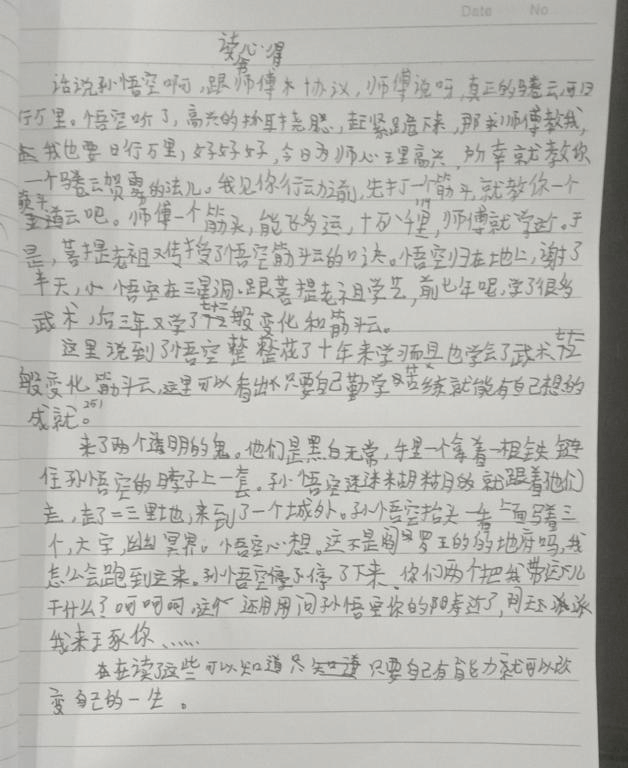 Date No
读书心得
话说孙悟空啊,跟师傅木协议,师傅说呀,真正的腾云,可日
行万里。悟空听了,高兴的抓耳挠腮,赶紧跪下来,那求师傅教我,
我也要日行万里,好好好,今日为师心里高兴,就教你
一个腾云驾雾的法儿。我见你行云方法前,先打一个筋斗,就教你一个
筋斗云吧。师傅一个筋头,能飞多远,十万八千里,师傅就学这个。于
是,菩提老祖又传授了悟空筋斗云的口诀。悟空归在地上,谢了
半天,小悟空在三星洞跟菩提老祖学艺,前七年呢,学了很多
武术,后三年又学了七十二般变化和筋斗云。
这里说到了孙悟空整整花了十年来学习而且也学会了武术七十二
般变化筋斗云,这里可以看出只要自己勤学苦练就能有自己想的
成就。251
来了两个透明的鬼。他们是黑白无常,手里一个拿着一根铁链
往孙悟空的脖子上一套。孙悟空迷迷糊糊的就跟着他们
走,走了二三里地,来到了一个城外。孙悟空抬头一看上面写着三
个大字,幽冥界。悟空心想。这不是阎罗王的的地府吗,我
怎么会跑到这来。孙悟空停了下来,你们两个把我带这儿
干什么?呵呵呵,这个还用问孙悟空你的阳寿近了,阎王派
我来主豕你……
在读了这些可以知道只要自己有能力就可以改
变自己的一生。